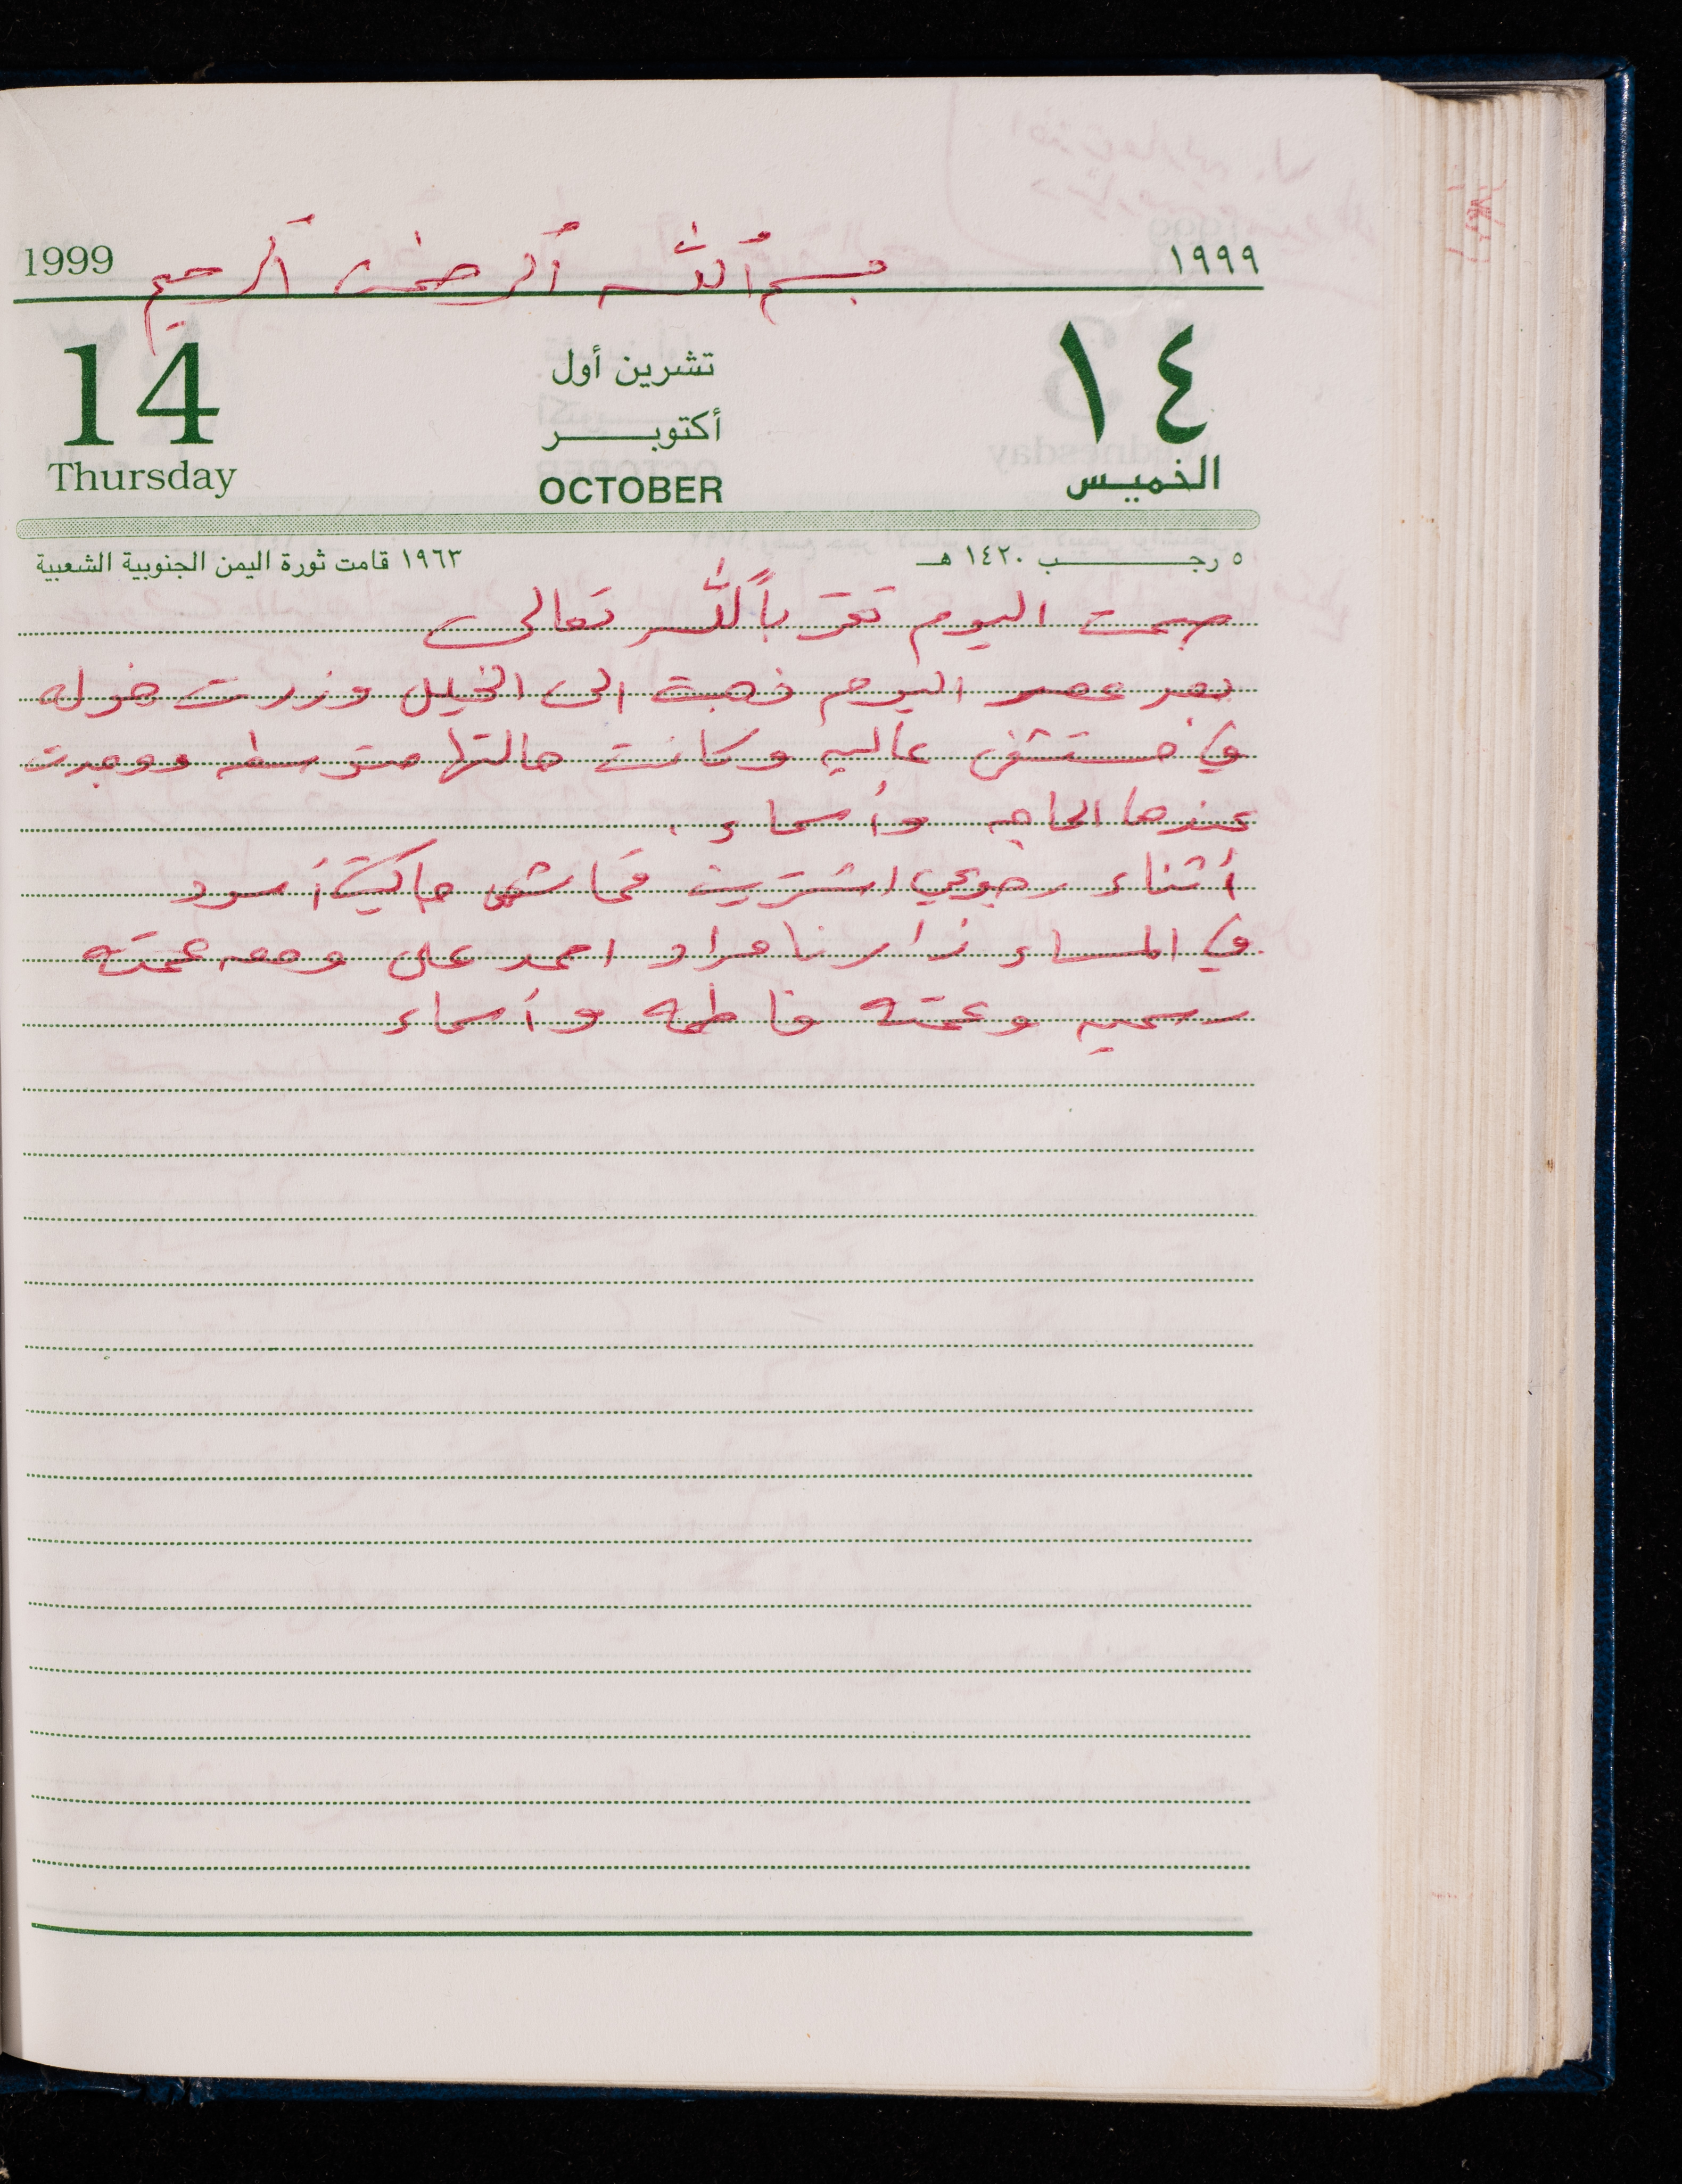 1999 بسم الله الرحمن الرحيم ١٩٩٩
14 تشرين أول ١٤
أكتوبر
Thursday OCTOBER الخميس
٥ رجب ١٤٢٠ هـ ١٩٦٣ قامت ثورة اليمن الجنوبية الشعبية
صمت اليوم تقرباً لله تعالى
بعد عصر اليوم ذهبت الى الخليل وزرت خوله
في مستشفى عاليه وكانت حالتها متوسطه ووجدت
عندها الحاجه وأسماء .
أثناء رجوعي اشتريت قماش جاكيت أسود
في المساء زارنا مراد احمد علي ومعه عمته
رسميه وعمته فاطمه وأسماء